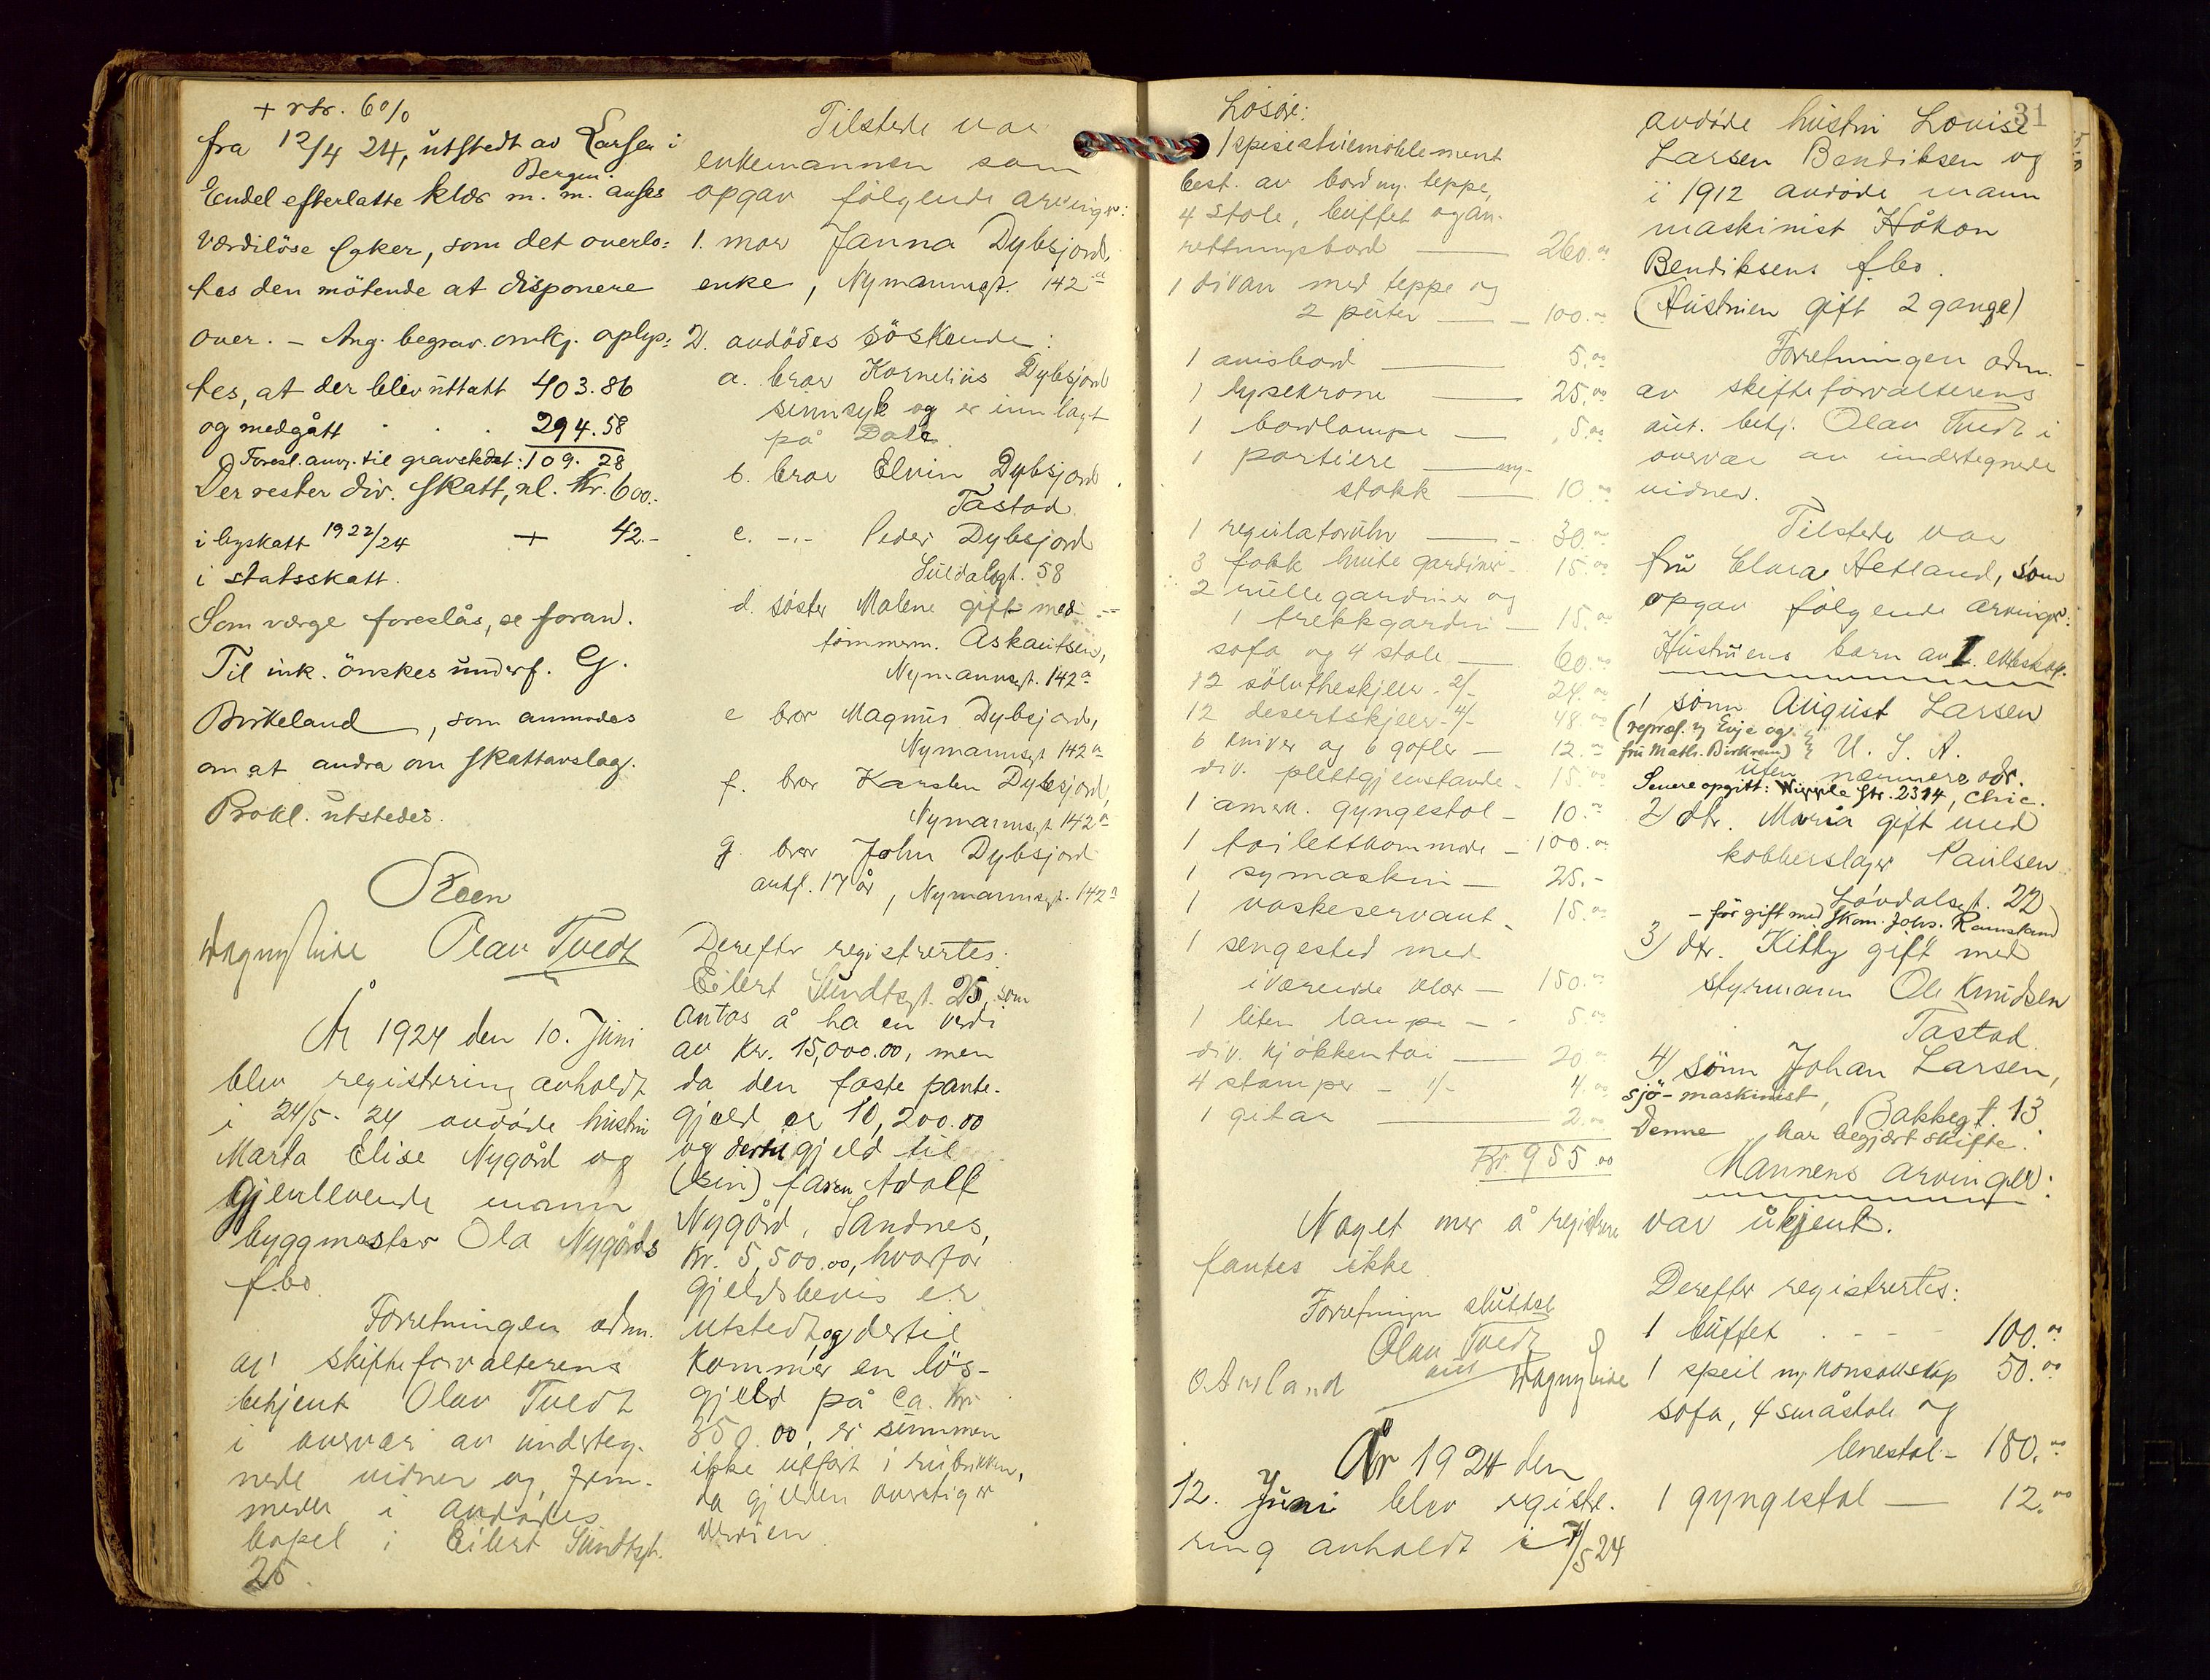 + rtr. 6%
fra 12/4 24, utstedt av Larsen i
Bergen.
Endel efterlatte klær m. m. anses
værdiløse saker, som det overlo=
tes den møtende at disponere
over. – Ang. begrav. omk. oplys=
tes, at der blev uttatt 403.86
og medgått . . . 294.58
Foresl. anv. til gravstedet: 109.28
Der rester div. skatt, nl. Kr. 600.
i byskatt 1922/24 + 42.-
i statsskatt.
Som værge foreslås, se foran.
Til ink. önskes underf. G.
Birkeland, som anmodes
om at andra om skattavslag.
Prokl. utstedes.
Steen
Olav Tvedt
År 1924 den 10. Juni
blev registrering avholdt
i 24/5- 24 avdøde hustru
Marta Elise Nygård og
gjenlevende mann
byggmester Ola Nygårds
f.bo.
Forretningen adm.
av skifteforvalterens
betjent Olav Tvedt
i overvær av underteg-
nede vidner og frem-
medt i avdødes
bopel i Eilert Sundtsgt.
25.
Tilstede var
enkemannen som
opgav følgende arvinger:
1. mor Janna Dybsjord,
enke, Nymannsgt. 142a
2. avdødes söskende:
a. bror Kornelius Dybsjord
sinnsyk og er innlagt
på Dale.
b. bror Elvin Dybsjord
Tastad.
c. -"- Peder Dybsjord
Suldalsgt. 58
d. søster Malene gift med
tömmerm. Askautsen,
Nymannsgt. 142a
e bror Magnus Dybsjord,
Nymannsgt 142a
f. bror Karsten Dybsjord,
Nymannsgt 142a
g. bror John Dybsjord
antil. 17 år, Nymannsgt. 142a
Derefter registrertes:
Eilert Sundtsgt. 25, som
antas å ha en verdi
av Kr. 15,000.00, men
da den faste pante-
gjeld er 10,200.00
og dertil gjeld til
(sin) faren Adolf
Nygård, Sandnes,
Kr. 5,500.00, hvorfor
gjeldsbevis er
utstedt og dertil
kommer en løs-
gjeld på ca. Kr.
350.00, er summen
ikke utført i rubrikken,
da gjelden overstiger
verdien
Løsøre:
1 spisestuemøblement
best. av bord m. teppe,
4 stole, buffet og an-
rettningsbord — 260.00
1 divan med teppe og
2 puter — 100.00
1 avisbord — 5.00
1 lysekrone — 25.00
1 bordlampe — 5.00
1 portiere m.
stokk — 10.00
1 regulatoruhr — 30.00
3 fakk hvite gardiner - 15.00
2 rullegardiner og
1 trekkgardin — 15.00
sofa og 4 stole — 60.00
12 sølvtheskjeer - 2/- 24.00
12 desertskjeer - 4/- 48.00
6 kniver og 6 gafler — 12.00
div. plettgjenstande - 15.00
1 amrk. gyngestol - 10.00
1 toilettkommode - 100.00
1 symaskin — 25.-
1 vaskeservant - 15.00
1 sengested med
iværende klær — 150.00
1 liten lampe — 5.00
div. kjøkkentøi — 20.00
4 stamper - 1/- 4.00
1 gitar — 2.00
Kr. 955.00
Noget mer å registrere
fantes ikke
Forretningen sluttet
Olav Tvedt
aut
År 1924 den
12. Juni blev registre-
ring avholdt i 7/5 24
31
avdøde hustru Lovise
Larsen Bendiksen og
i 1912 avdøde mann
maskinist Håkon
Bendiksens f.bo.
(Hustruen gift 2 gange)
Forretningen adm.
av skifteforvalterens
aut. betj. Olav Tvedt i
overvær av undertegnede
vidner.
Tilstede var
fru Elna Hetland, som
opgav følgende arvinger:
Hustruens barn av 1. ekteskap.
1 sönn August Larsen
(repræs. v/ Evje og
fru Math. Birkrem) U. S. A.
uten nærmere adr.
Senere opgitt: Str. 2314, Chic.
2) dtr. Maria gift med
kobberslager Paulsen
Løvdalsgt. 22
- før gift med skom. Johs. Ramsland)
3) dtr. Kitty gift med
styrmann Ole Knudsen
Tastad.
4) sönn Johan Larsen,
sjö-maskinist, Bakkegt. 13
Denne har begjært skifte.
Mannens arvinger:
var ukjent.
Derefter registrertes:
1 buffet . - - - 100.00
1 speil m. konsollskap 50.00
sofa, 4 småstole og
lenestol - 180.00
1 gyngestol — 12.00